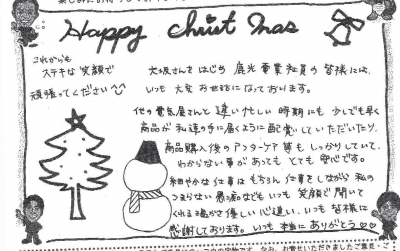 Happy christ mas
これからも
ステキな笑顔で
頑張ってください^^
大坂さんをはじめ 鹿光電業社員の皆様には、
いつも大変お世話になっております。
他の電気屋さんと違い忙しい時期にも少しでも早く
商品が私達の手に届くように配慮していただいたり、
商品購入後のアフターケア等もしっかりしていて、
わからない事があってもとても安心です。
細やかな仕事はもちろん、仕事をしながら私の
つまらない愚痴などもいつも笑顔で聞いて
くれる暖かさ優しい心遣い、いつも皆様に
感謝しております。いつも本当にありがとう♡♡